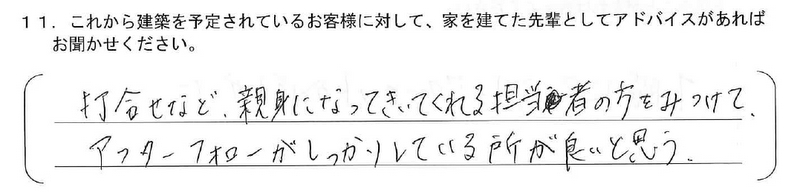 １１．これから建築を予定されているお客様に対して、家を建てた先輩としてアドバイスがあれば
お聞かせください。
打合せなど、親身になってきいてくれる担当者の方をみつけて、
アフターフォローがしっかりしている所が良いと思う。